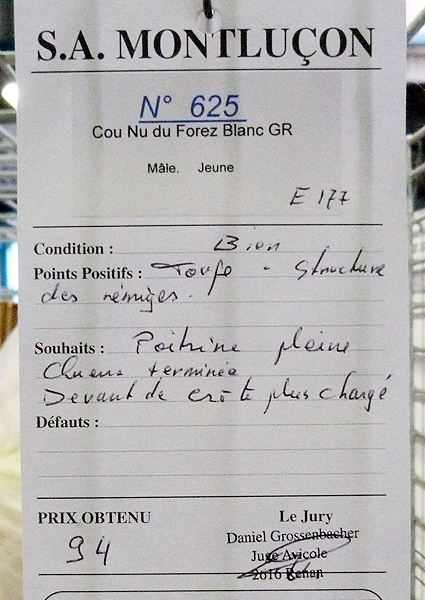 S.A. MONTLUÇON
N° 625
Cou Nu du Forez Blanc GR
Mâle. Jeune
E 177
Condition : Bien
Points Positifs : Toupe - Structure
des rémiges.
Souhaits : Poitrine pleine
terminée
Devant de crête plus chargé
Défauts :
PRIX OBTENU
Le Jury
94
Daniel Grossenbacher
Juge Avicole
2616 Renan